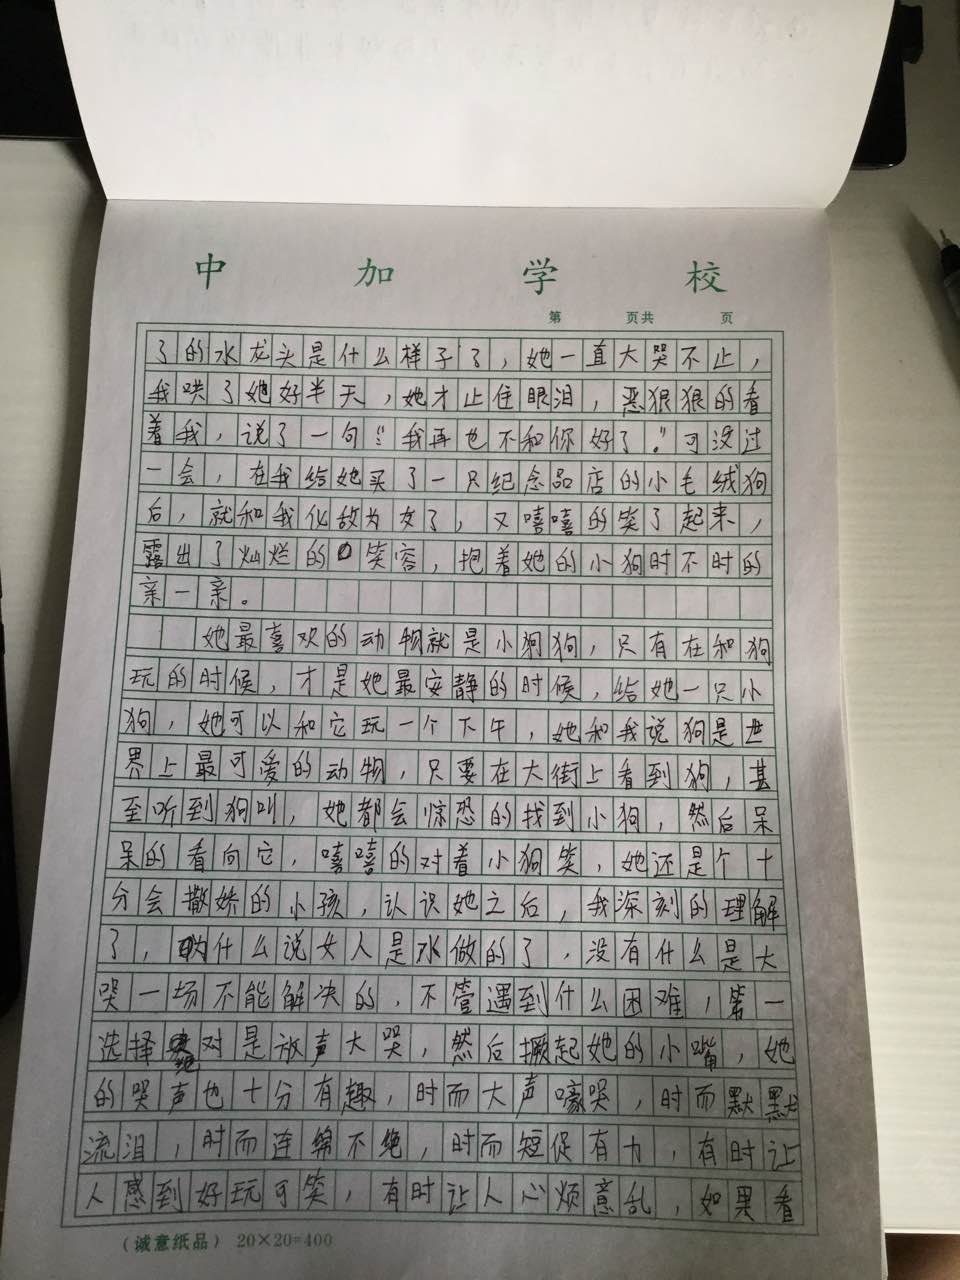 中加学校
第 页共 页
了的水龙头是什么样子了，她一直大哭不止，
我哄了她好半天，她才止住眼泪，恶狠狠的看
着我，说了一句“我再也不和你好了。”可没过
一会，在我给她买了一只纪念品店的小毛绒狗
后，就和我化敌为友了，又嘻嘻的笑了起来，
露出了灿烂的笑容，抱着她的小狗时不时的
亲一亲。
她最喜欢的动物就是小狗狗，只有在和狗
玩的时候，才是她最安静的时候，给她一只小
狗，她可以和它玩一个下午，她和我说狗是世
界上最可爱的动物，只要在大街上看到狗，甚
至听到狗叫，她都会惊恐的找到小狗，然后呆
呆的看向它，嘻嘻的对着小狗笑，她还是个十
分会撒娇的小孩，认识她之后，我深刻的理解
了，为什么说女人是水做的了，没有什么是大
哭一场不能解决的，不管遇到什么困难，第一
选择绝对是放声大哭，然后撅起她的小嘴，她
的哭声也十分有趣，时而大声嚎哭，时而默默
流泪，时而连绵不绝，时而短促有力，有时让
人感到好玩可笑，有时让人心烦意乱，如果看
（诚意纸品） 20×20=400